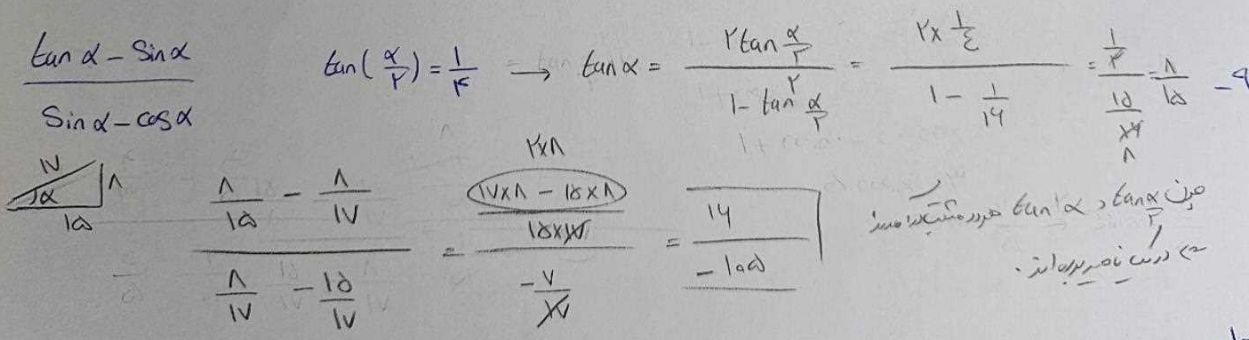 (tan α - Sin α) / (Sin α - cos α)
tan(α/۲) = ۱/۴ → tan α = (۲tan α/۲) / (۱ - tan² α/۲) = (۲ × ۱/٤) / (۱ - ۱/۱۶) = (۱/۲) / (۱۵/۱۶) = ۸/۱۵ - ۹
۱۷ ۸ α ۱۵
(۸/۱۵ - ۸/۱۷) / (۸/۱۷ - ۱۵/۱۷) = ((۱۷×۸ - ۱۵×۸) / (۱۵×۱۷)) / (-۷/۱۷) = ۱۶ / -۱۰۵
۲×۸
چون tan α/۲ و tan α هر دو مثبت
در یک ناحیه